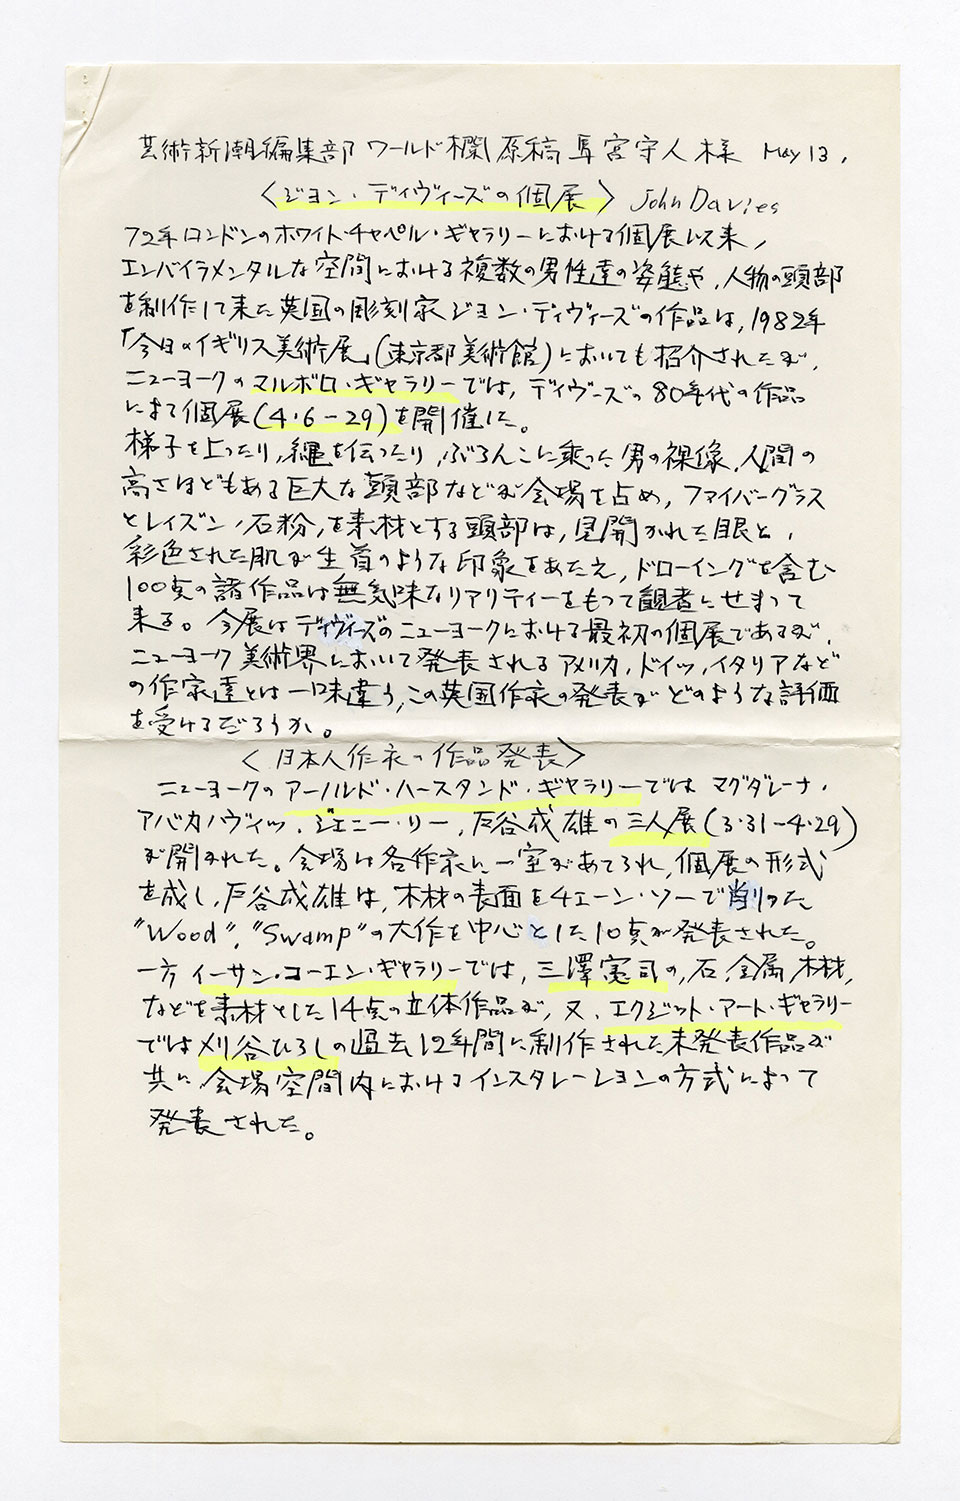 芸術新潮編集部 ワールド欄原稿 馬宮守人様 May 13,
〈ジョン・ディヴィーズの個展〉 John Davies
72年ロンドンのホワイト・チャペル・ギャラリーにおける個展以来、
エンバイラメンタルな空間における複数の男性達の姿態や、人物の頭部
を制作して来た英国の彫刻家ジョン・ディヴィーズの作品は、1982年
「今日のイギリス美術展」(東京都美術館)においても招介されたが、
ニューヨークのマルボロ・ギャラリーでは、ディヴィーズの80年代の作品
によって個展(4・6-29)を開催した。
梯子を上ったり、縄を伝ったり、ぶらんこに乗った男の裸像、人間の
高さほどもある巨大な頭部などが会場を占め、ファイバーグラス
とレイズン、石粉、を素材とする頭部は、見開かれた眼と、
彩色された肌が生首のような印象をあたえ、ドローイングを含む
100点の諸作品は無気味なリアリティーをもって観者にせまって
来る。今展はディヴィーズのニューヨークにおける最初の個展であるが、
ニューヨーク美術界において発表されるアメリカ、ドイツ、イタリアなど
の作家達とは一味違う、この英国作家の発表がどのような評価
を受けるだろうか。
〈日本人作家の作品発表〉
ニューヨークのアーノルド・ハースタンド・ギャラリーでは マグダレーナ・
アバカノヴィッツ、ジェニー・リー、戸谷成雄の三人展(3・31-4・29)
が開かれた。会場は各作家に一室があてられ、個展の形式
を成し、戸谷成雄は、木材の表面をチェーン・ソーで削った
"Wood"、"Swamp"の大作を中心とした10点が発表された。
一方イーサン・コーエン・ギャラリーでは、三澤憲司の、石、金属、木材、
などを素材とした14点の立体作品が、又、エクジット・アート・ギャラリー
では刈谷ひろしの過去12年間に制作された未発表作品が
共に、会場空間内におけるインスタレーションの方式によって
発表された。